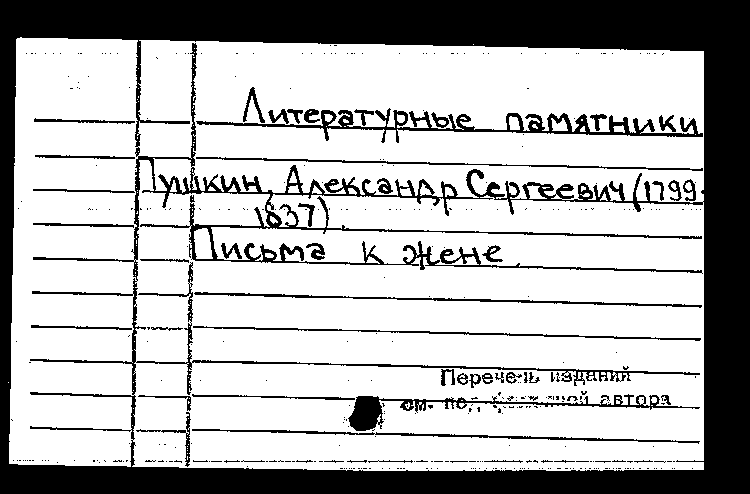 Литературные памятники
Пушкин, Александр Сергеевич (1799-
1837).
Письма к жене.
Перечень изданий
см. под фамилией автора